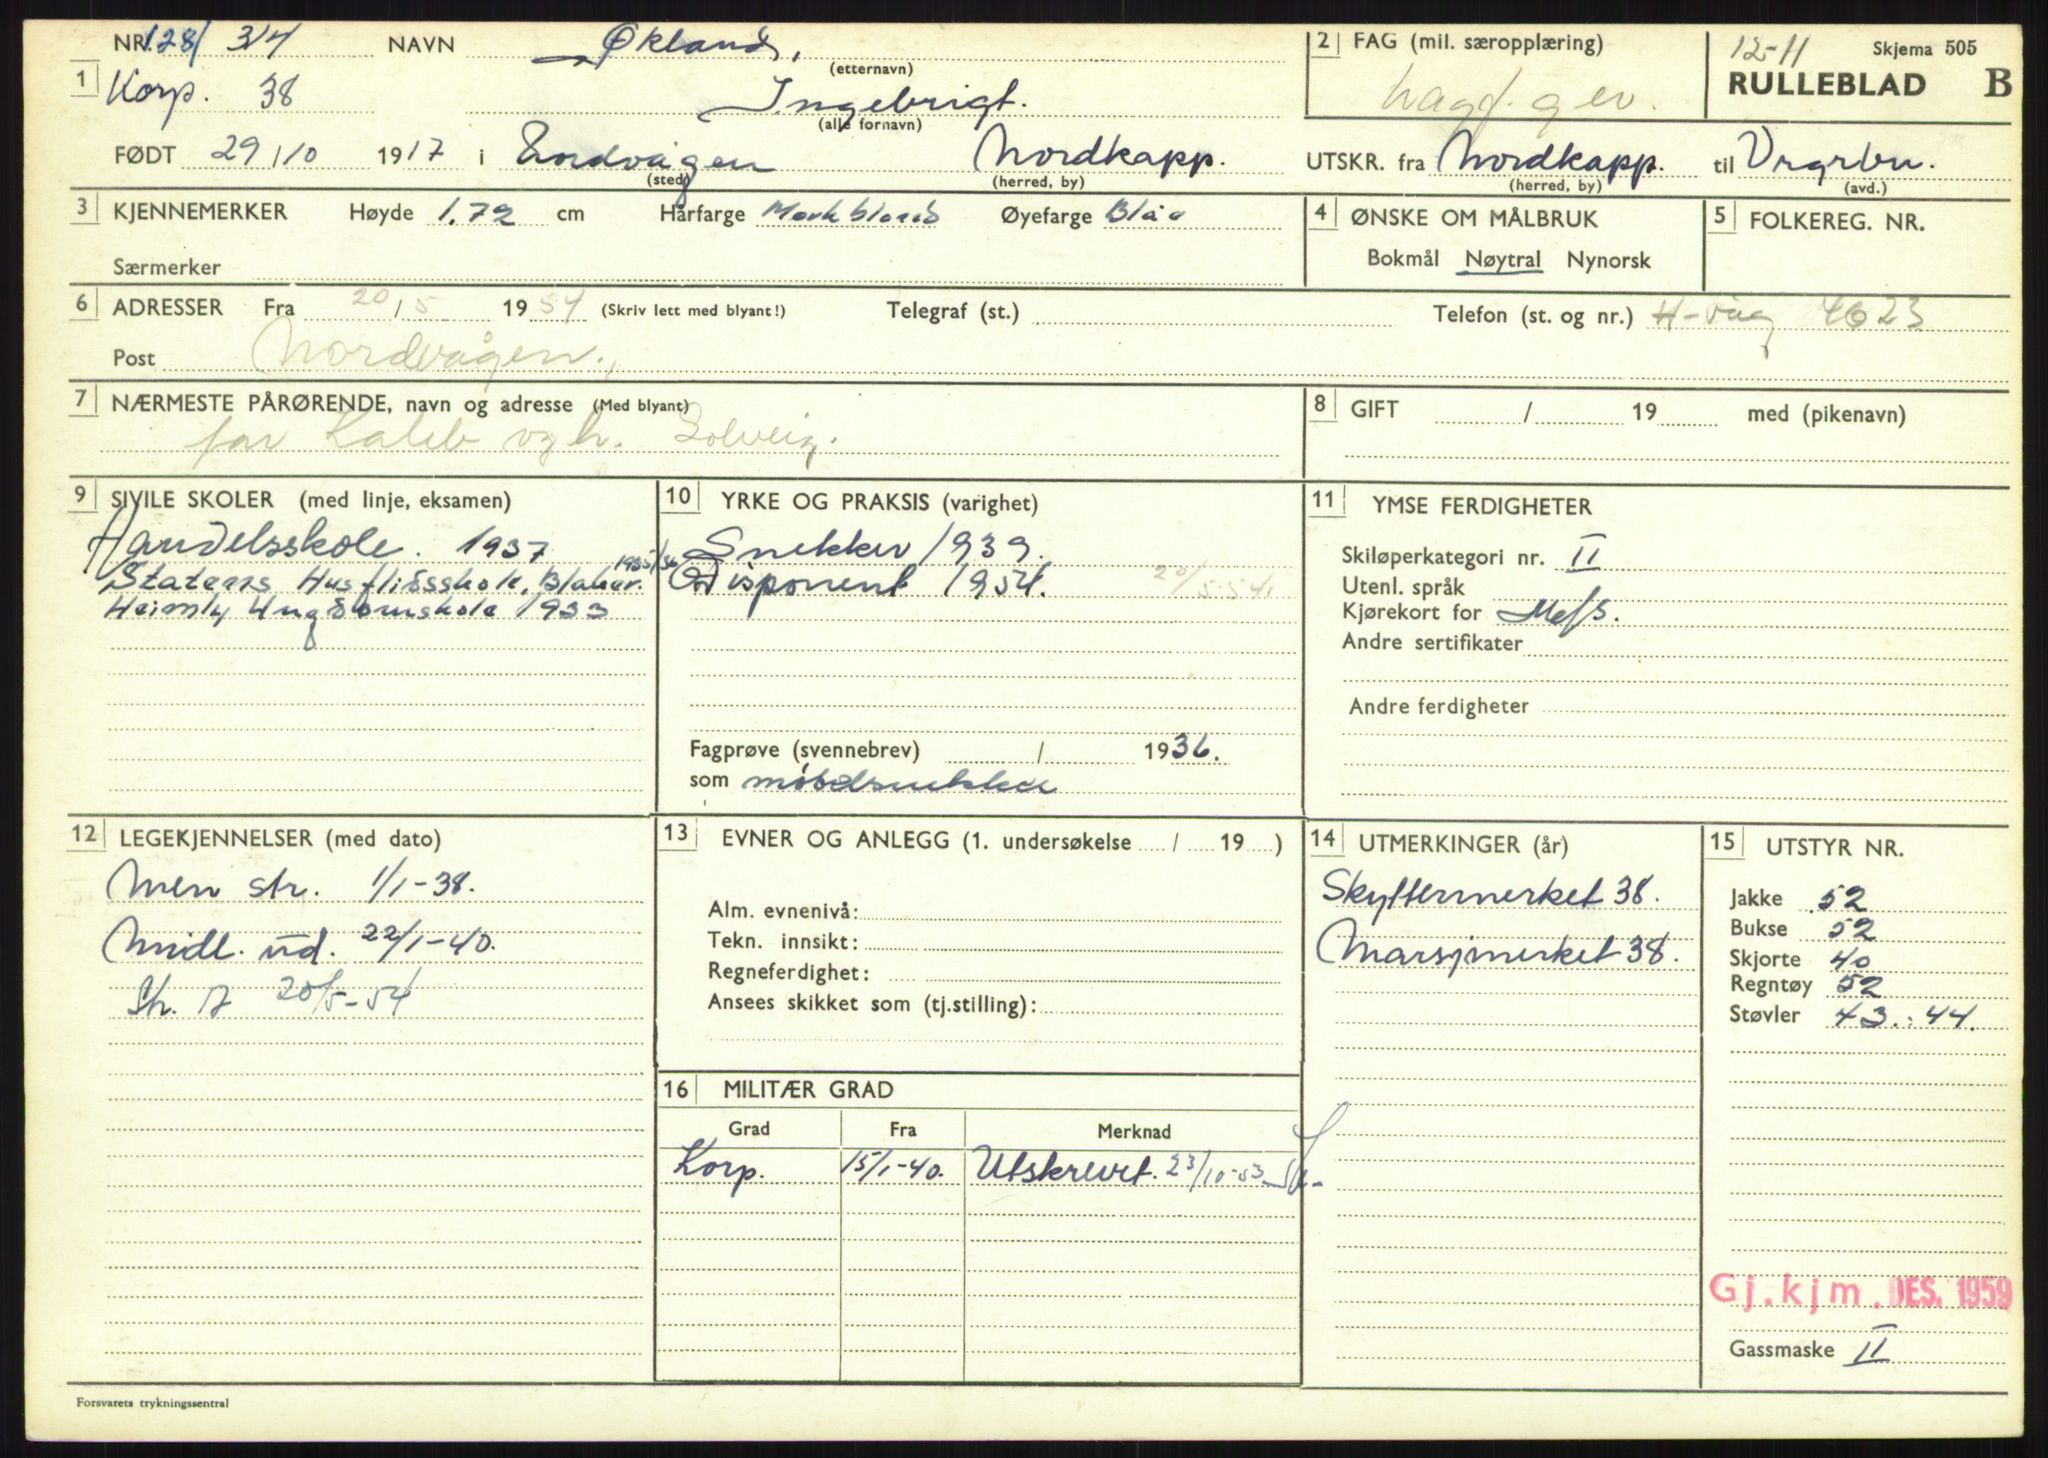 NR. 128/ 314 NAVN Økland, (etternavn)
1 Korp. 38 Ingebrigt. (alle fornavn)
FØDT 29/10 1917 i (sted) Nordkapp. (herred, by)
2 FAG (mil. særopplæring)
Lagf. gev.
12-11 Skjema 505
RULLEBLAD B
UTSKR. fra Nordkapp. (herred, by) til (avd.)
3 KJENNEMERKER Høyde 1.72 cm Hårfarge Mørkblond Øyefarge Blåe
Særmerker
4 ØNSKE OM MÅLBRUK
Bokmål Nøytral Nynorsk
5 FOLKEREG. NR.
6 ADRESSER Fra 20/5 1954 (Skriv lett med blyant!) Telegraf (st.) Telefon (st. og nr.) H-våg 4623
Post Nordvågen.,
7 NÆRMESTE PÅRØRENDE, navn og adresse (Med blyant)
far Kaleb og h. Solveig.
8 GIFT / 19 med (pikenavn)
9 SIVILE SKOLER (med linje, eksamen)
Handelsskole. 1937
Statens Husflidsskole, Blaker. 1935/36
Heimly Ungdomskole 1933
10 YRKE OG PRAKSIS (varighet)
Snekker 1939.
Disponent 1954. 20/5-54.
Fagprøve (svennebrev) / 1936.
som møbelsnekker
11 YMSE FERDIGHETER
Skiløperkategori nr. II
Utenl. språk
Kjørekort for
Andre sertifikater
Andre ferdigheter
12 LEGEKJENNELSER (med dato)
Men str. 1/1-38.
Midl. ud. 22/1-40.
Str. A 20/5-54
13 EVNER OG ANLEGG (1. undersøkelse / 19 )
Alm. evnenivå:
Tekn. innsikt:
Regneferdighet:
Ansees skikket som (tj.stilling):
14 UTMERKINGER (år)
Skyttermerket 38.
Marsjmerket 38.
15 UTSTYR NR.
Jakke 52
Bukse 52
Skjorte 40
Regntøy 52
Støvler 43.:44.
Gj.kjm. DES. 1959
Gassmaske II
16 MILITÆR GRAD
Grad Fra Merknad
Korp. 15/1-40. Utskrevet. 23/10-53
Forsvarets trykningssentral